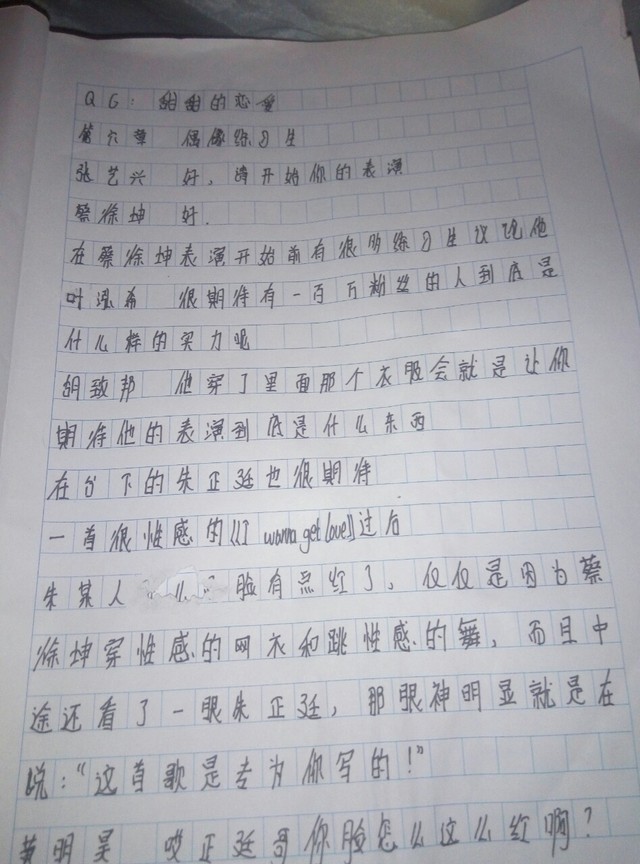 QG：甜甜的恋爱
第六章 偶像练习生
张艺兴 好，请开始你的表演
蔡徐坤 好.
在蔡徐坤表演开始前有很多练习生议论他
叶泓希 很期待有一百万粉丝的人到底是
什么样的实力呢
胡致邦 他穿了里面那个衣服会就是让你
期待他的表演到底是什么东西
在台下的朱正廷也很期待
一首很性感的《I wanna get love》过后
朱某人 脸有点红了、仅仅是因为蔡
徐坤穿性感的网衣和跳性感的舞，而且中
途还看了一眼朱正廷，那眼神明显就是在
说：“这首歌是专为你写的！”
黄明昊 哎正廷哥你脸怎么这么红啊？